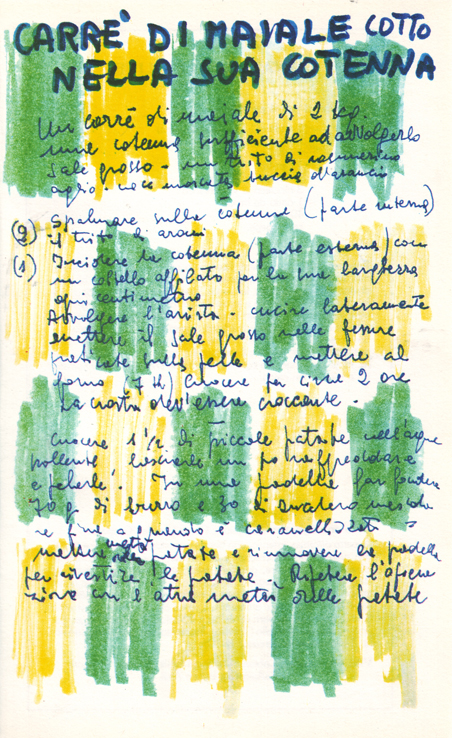 CARRE' DI MAIALE COTTO
NELLA SUA COTENNA
Un carré di maiale di 2 kg.
una cotenna sufficiente ad avvolgerlo
sale grosso - un trito di rosmarino
aglio. noce moscata buccia d'arancio
Spalmare sulla cotenna (parte interna)
(2) il trito di aromi
(1) Incidere la cotenna (parte esterna) con
un coltello affilato per la sua larghezza
ogni centimetro
Avvolgere l'arista - cucire lateramente
e mettere il sale grosso nelle fessure
praticate sulla pelle e mettere al
forno (7 th) Cuocere per circa 2 ore
La crosta dev'essere croccante.
Cuocere 1 1/2 di piccole patate nell'acqua
bollente lasciarle un po raffreddare
e pelarle. In una padella far fondere
70 g di burro e 30 di zucchero mescola
re fino a quando è caramellizzato =
mettere metà delle patate e rimuovere la padella
per rivestire le patate. Ripetere l'opera
zione con l'altra metà delle patate